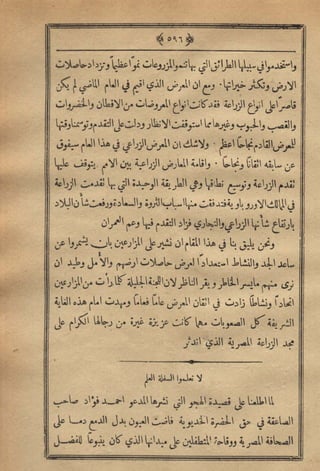 ﴿ ٥٩٦ ﴾
واستخدموا في سبيلها الطرائق التي بها تنمو المزروعات نموًّا عظيمًا وتزداد حاصلات
الارض وتكثر خيراتها · ومع ان المعرض الذي اقيم في العام الماضي لم يكن
قاصرًا على انواع الزراعة فقد كانت انواع المعروضات من الاقطان والخضروات
والقصب والحبوب وغيرها مما استوقفت الانظار ودلت على التقدم وتوسمنا وقتها
للمعرض القادم نجاحًا اعظم · ولا شك ان المعرض الزراعي في هذا العام سيفوق
عن سابقه اتقانًا ونجاحًا · واقامة المعارض الزراعية بين الامم يتوقف عليها
تقدم الزراعة وتوسيع نطاقها وهي الطريقة الوحيدة التي بها تقدمت الزراعة
في الممالك الاوروباوية فتدفقت منها سياب الثروة والسعادة ورفعت شأن البلاد
بارتفاع شأنها الزراعي والتجاري فزاد التقدم فيها وعم العمران
ونحن يليق بنا في هذا المقام ان نشير على المزارعين بان يشمروا عن
ساعد الجد والنشاط استعدادًا لعرض حاصلات ارضهم والأمل وطيد ان
نرى منهم ما يسر الخاطر ويقر الناظر لان اللجنة الجليلة كلما رأت من المزارعين
اتحادًا ونشاطًا زادت في اتقان المعرض عامًا فعامًا ومهدت امام هذه الغاية
الشريفة كل الصعوبات مهما كانت عزيزة غيرة من رجالها الكرام على
مجد الزراعة المصرية الذي اندثر
لا تعلموا السفلة العلم
لما اطلعنا على قصيدة الهجو التي نشرها المدعو احمد فؤاد صاحب
الصاعقة في حق الحضرة الخديوية فاضت العيون بدل الدمع دمًا على
الصحافة المصرية ووقاحة المتطفلين على ميدانها الذي كان ينبوعًا للفضل